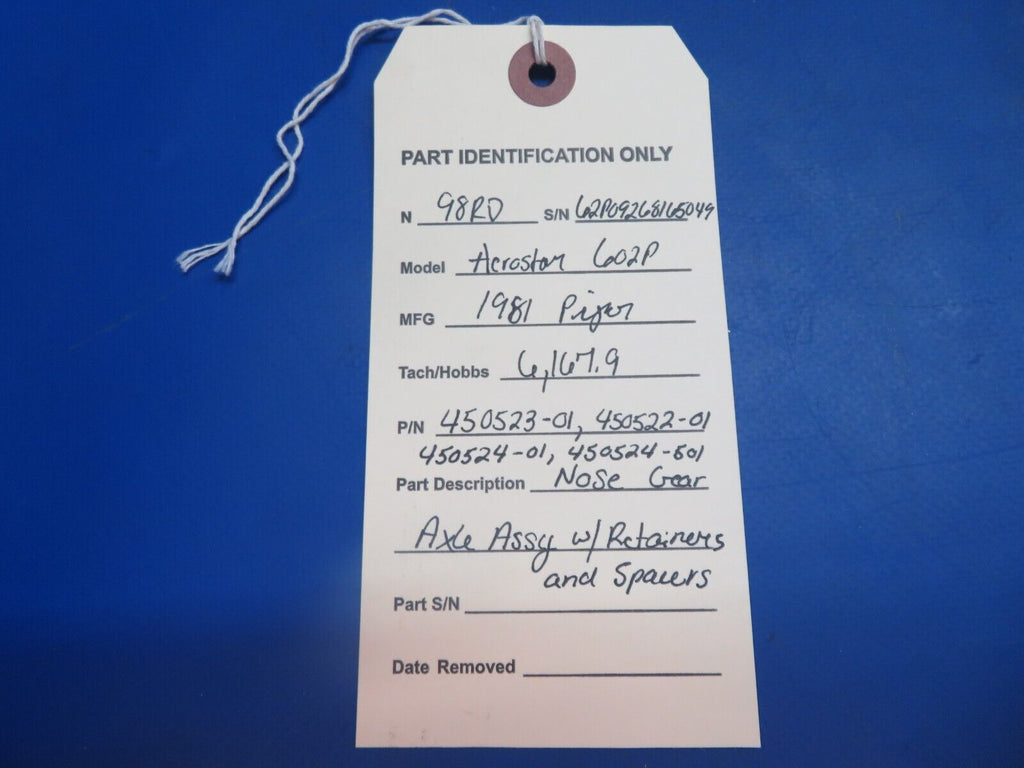 PART IDENTIFICATION ONLY
N 98RD S/N 62P09268165049
Model Aerostar 602P
MFG 1981 Piper
Tach/Hobbs 6,167.9
P/N 450523-01, 450522-01
450524-01, 450524-501
Part Description Nose Gear
Axle Assy w/ Retainers
and Spacers
Part S/N
Date Removed